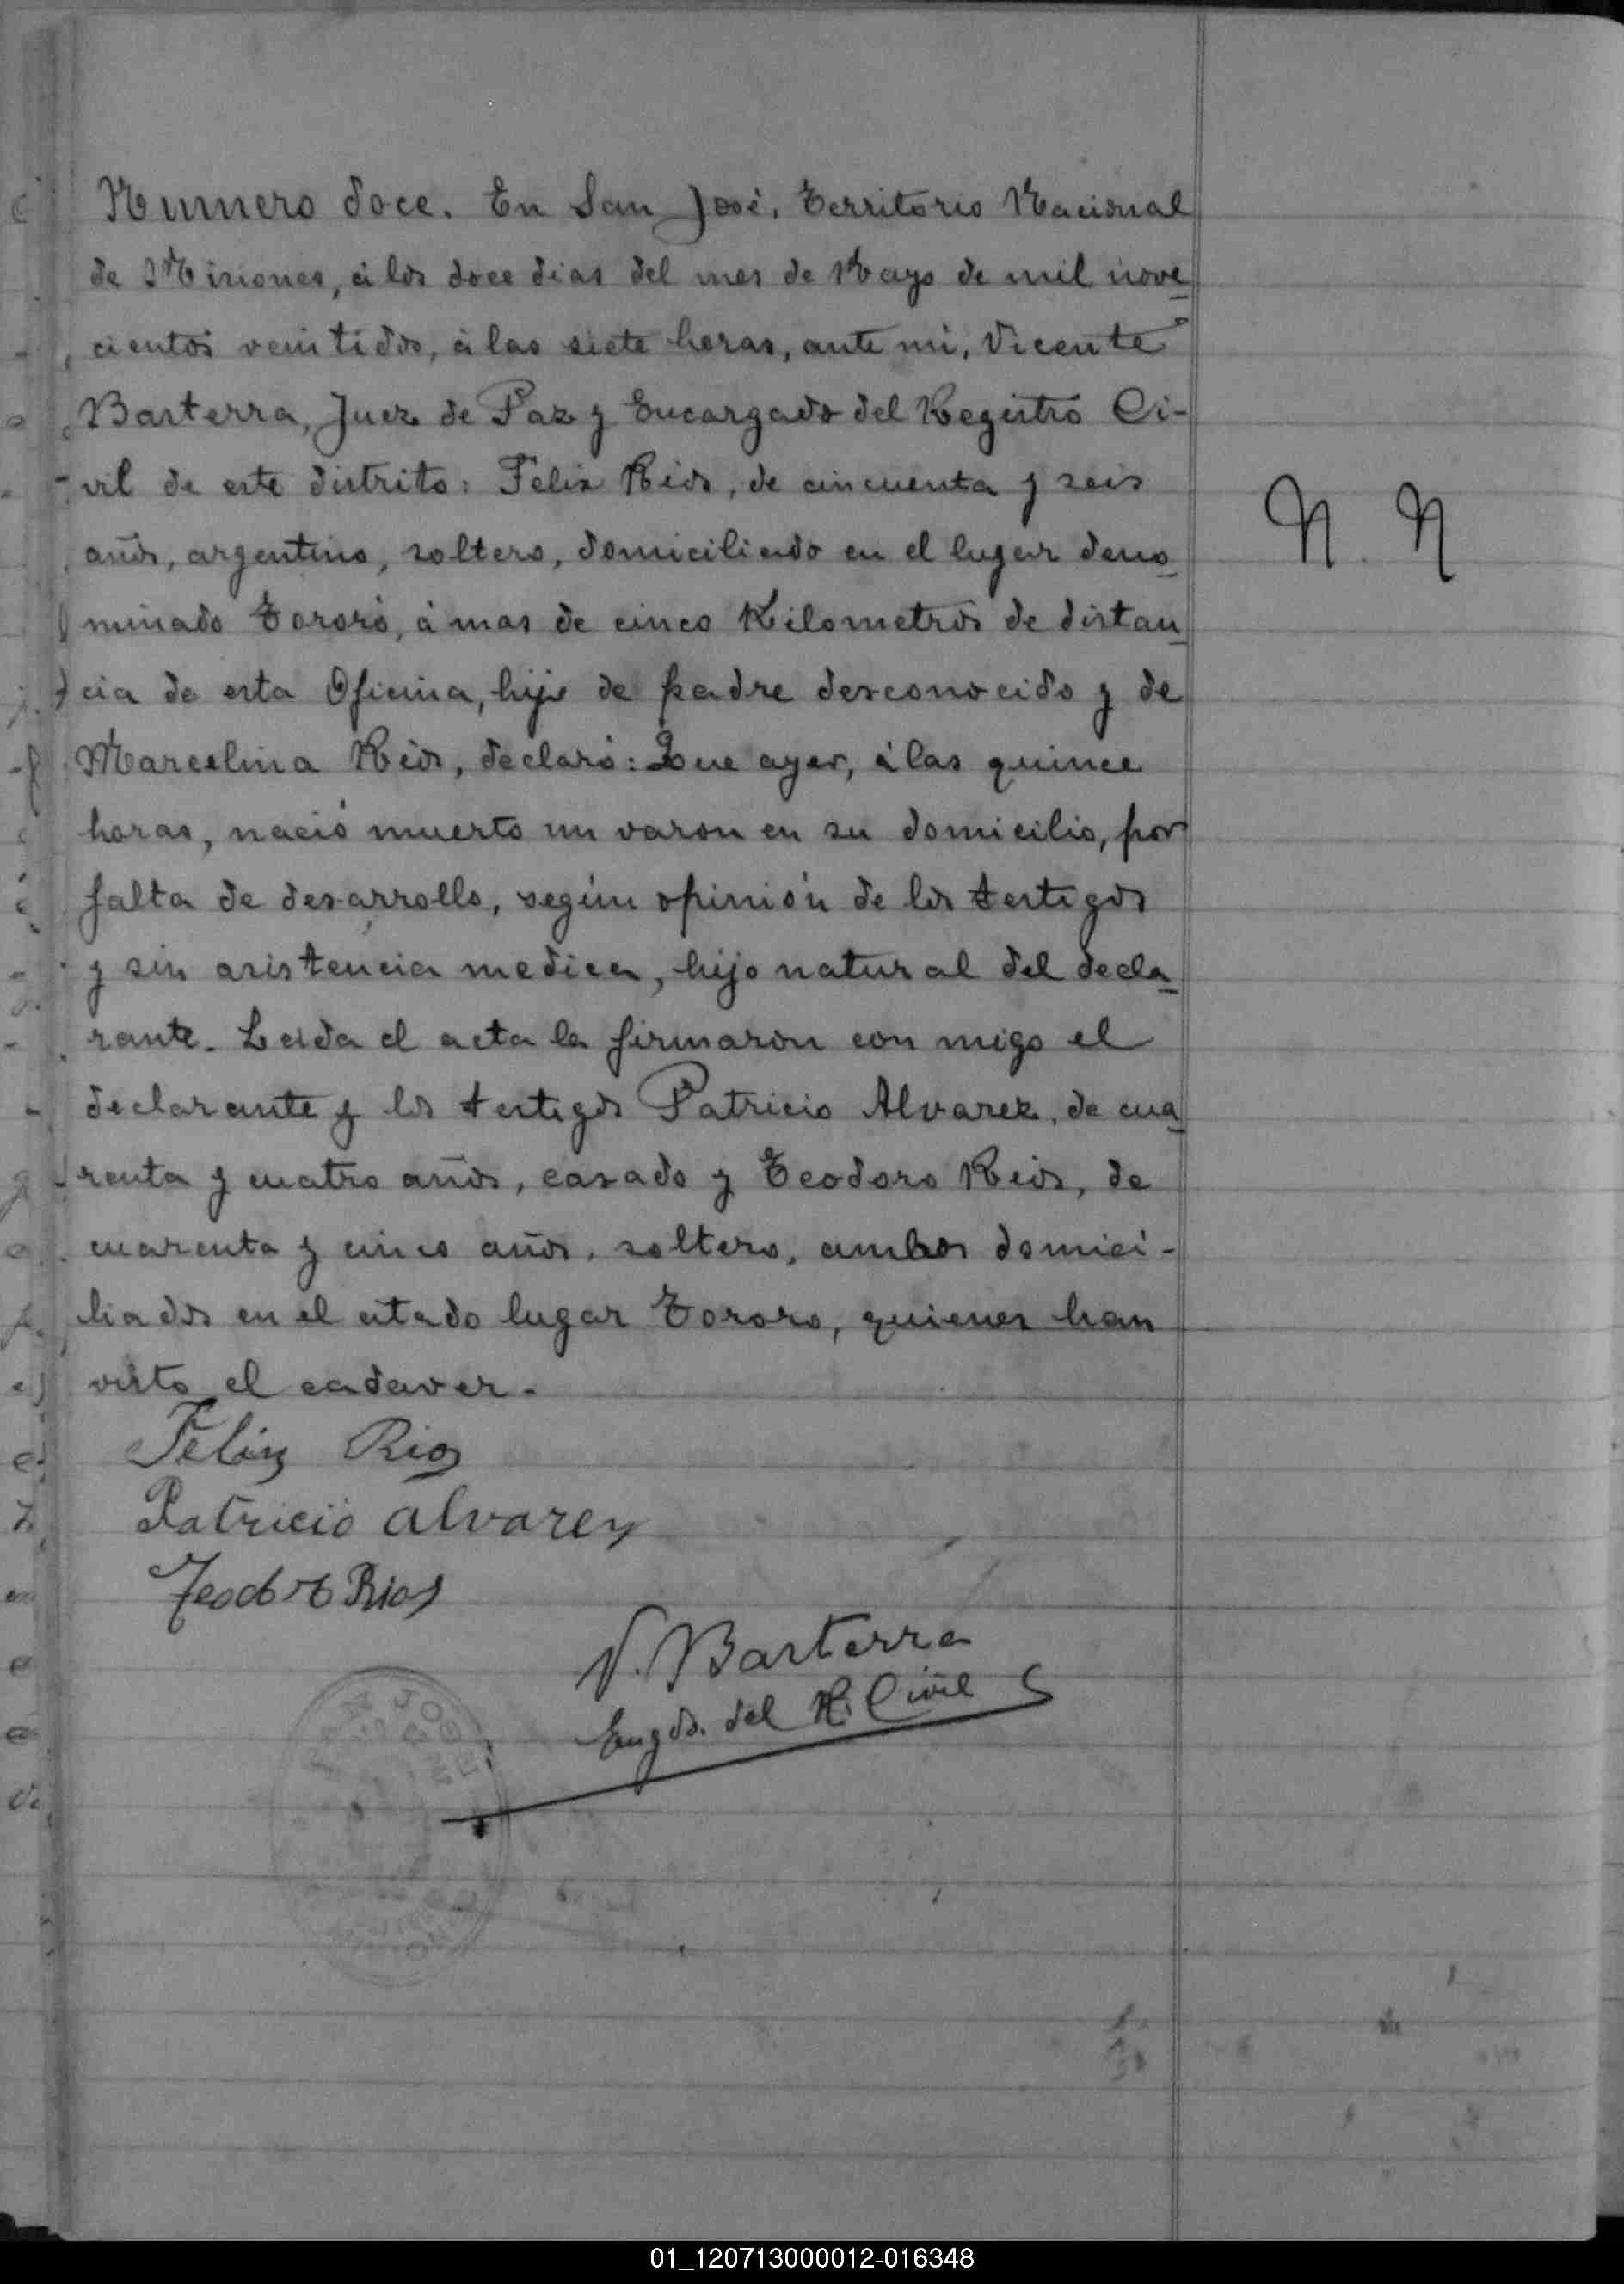 Numero doce. En San José, Territorio Nacional
de Misiones, á los doce dias del mes de Mayo de mil nove
cientos veintidos, á las siete horas, ante mi, Vicente
Basterra, Juez de Paz y Encargado del Registro Ci-
vil de este distrito: Felix Rios, de cincuenta y seis
años, argentino, soltero, domiciliado en el lugar deno
minado Tororó, á mas de cinco Kilometros de distan
cia de esta Oficina, hijo de padre desconocido y de
Marcelina Rios, declaró: Que ayer, á las quince
horas, nació muerto un varon en su domicilio, por
falta de desarrollo, según opinión de los testigos
y sin asistencia medica, hijo natural del decla
rante. Leida el acta la firmaron con migo el
declarante y los testigos Patricio Alvarez, de cua
renta y cuatro años, casado y Teodoro Rios, de
cuarenta y cinco años, soltero, ambos domici-
liados en el citado lugar Tororo, quienes han
visto el cadaver.
N. N
Felix Rios
Patricio alvarez
Teodoro Rios
V. Basterra
Engdo. del R. Civil
SAN JOSE
01_120713000012-016348